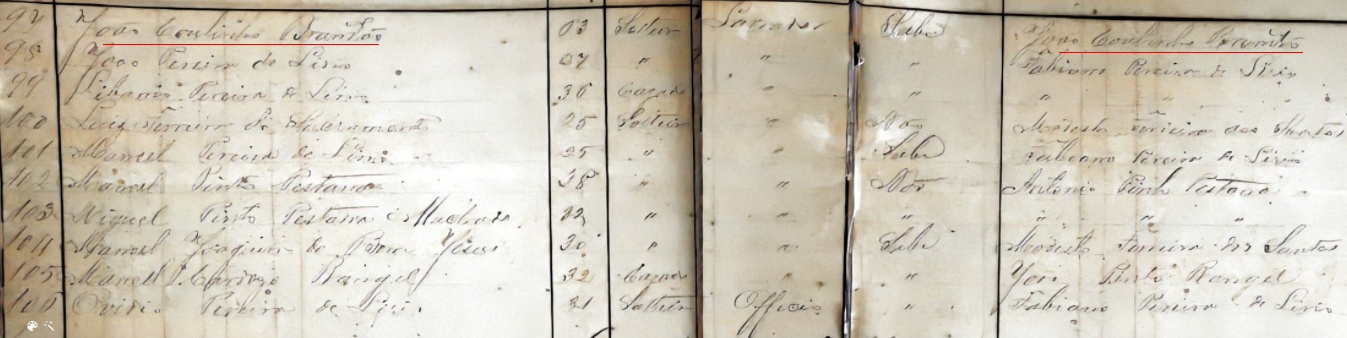 97 João Coutinho Brandão 03 Solteiro Lavrador Sabe João Coutinho Brandão
98 João Pereira de Lirio 27 " " " Fabiano Pereira de Lirio
99 Pereira de Lirio 36 Casado " " " "
100 Luiz Ferreira do Sacramento 25 Solteiro " Não Modesto Ferreira dos Santos
101 Manoel Pereira de Lirio 25 " " Sabe Fabiano Pereira de Lirio
102 Manoel Pinto Pestana 38 " " Não Antonio Pinto Pestana
103 Miguel Pinto Pestana Machado 22 " " " " " "
104 Manoel Joaquim do Bom Jesus 30 " " Sabe Modesto Ferreira dos Santos
105 Manoel Rangel 32 Casado " " Pinto Rangel
106 Ovidio Pereira de Lirio 21 Solteiro Officio " Fabiano Pereira de Lirio